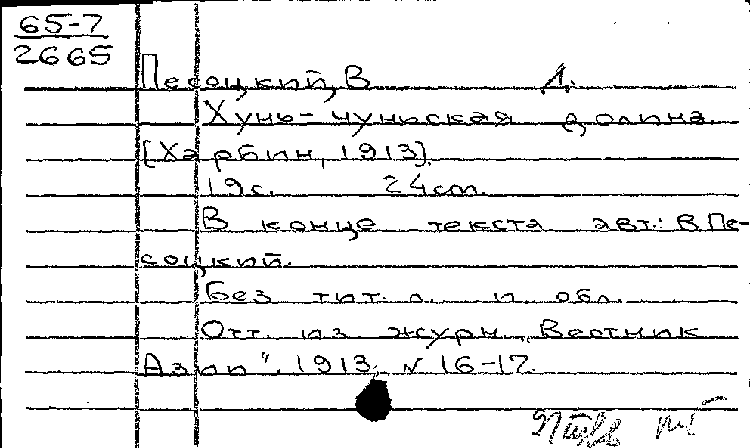 65-7
2665
Песоцкий, В Д.
Хунь-чуньская долина.
[Харбин, 1913].
19с. 24cm.
В конце текста авт.: В Пе-
соцкий.
Без тит. л. и обл.
Отт. из журн. „Вестник
Азии“. 1913, N 16-17.